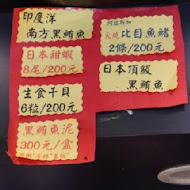 印度洋
南方黑鮪魚
日本甜蝦
8尾/200元
生食干貝
6粒/200元
黑鮪魚泥
300元/盒
阿拉斯加
炙燒比目魚鰭
2條/200元
日本頂級
黑鮪魚